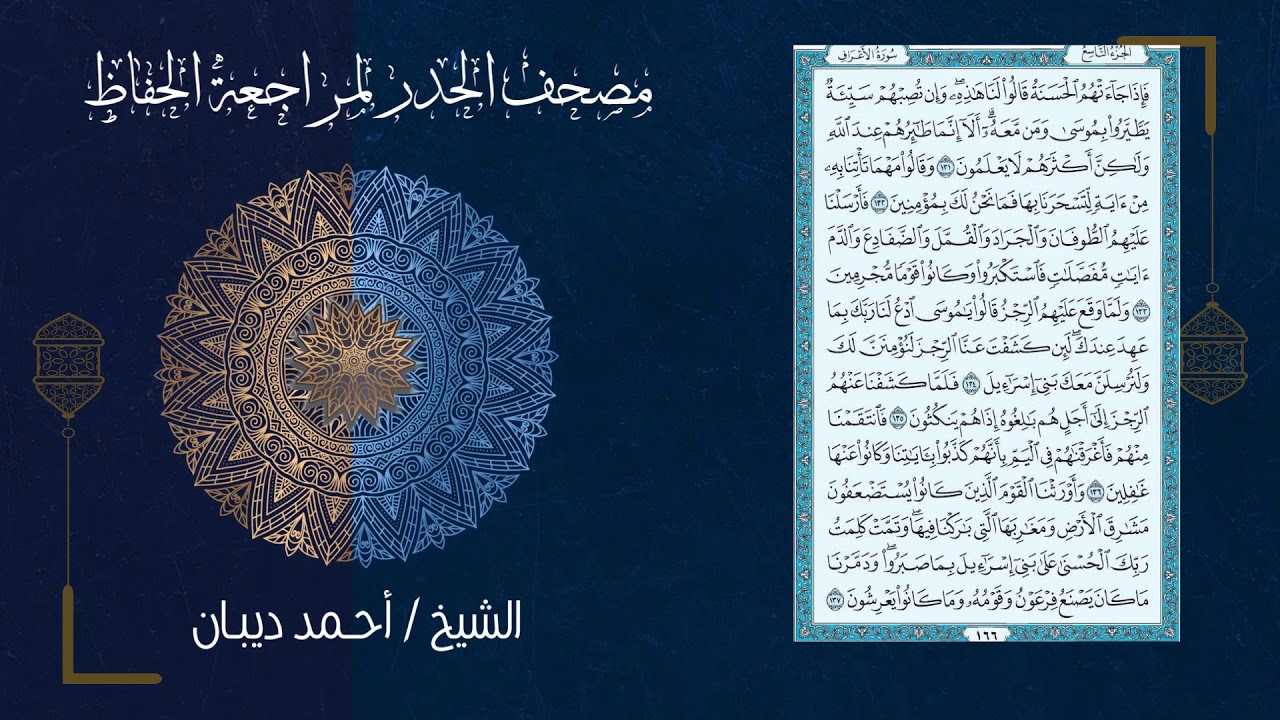 مصحف الحدر لمراجعة الحفاظ
الشيخ / أحمد ديبان
الجزء التاسع
سورة الأعراف
فَإِذَا جَآءَتْهُمُ ٱلْحَسَنَةُ قَالُوا۟ لَنَا هَٰذِهِۦ ۖ وَإِن تُصِبْهُمْ سَيِّئَةٌ
يَطَّيَّرُوا۟ بِمُوسَىٰ وَمَن مَّعَهُۥٓ ۗ أَلَآ إِنَّمَا طَٰٓئِرُهُمْ عِندَ ٱللَّهِ
وَلَٰكِنَّ أَكْثَرَهُمْ لَا يَعْلَمُونَ ١٣١ وَقَالُوا۟ مَهْمَا تَأْتِنَا بِهِۦ
مِنْ ءَايَةٍ لِّتَسْحَرَنَا بِهَا فَمَا نَحْنُ لَكَ بِمُؤْمِنِينَ ١٣٢ فَأَرْسَلْنَا
عَلَيْهِمُ ٱلطُّوفَانَ وَٱلْجَرَادَ وَٱلْقُمَّلَ وَٱلضَّفَادِعَ وَٱلدَّمَ
ءَايَٰتٍ مُّفَصَّلَٰتٍ فَٱسْتَكْبَرُوا۟ وَكَانُوا۟ قَوْمًا مُّجْرِمِينَ
١٣٣ وَلَمَّا وَقَعَ عَلَيْهِمُ ٱلرِّجْزُ قَالُوا۟ يَٰمُوسَى ٱدْعُ لَنَا رَبَّكَ بِمَا
عَهِدَ عِندَكَ ۖ لَئِن كَشَفْتَ عَنَّا ٱلرِّجْزَ لَنُؤْمِنَنَّ لَكَ
وَلَنُرْسِلَنَّ مَعَكَ بَنِىٓ إِسْرَٰٓءِيلَ ١٣٤ فَلَمَّا كَشَفْنَا عَنْهُمُ
ٱلرِّجْزَ إِلَىٰٓ أَجَلٍ هُم بَٰلِغُوهُ إِذَا هُمْ يَنكُثُونَ ١٣٥ فَٱنتَقَمْنَا
مِنْهُمْ فَأَغْرَقْنَٰهُمْ فِى ٱلْيَمِّ بِأَنَّهُمْ كَذَّبُوا۟ بِـَٔايَٰتِنَا وَكَانُوا۟ عَنْهَا
غَٰفِلِينَ ١٣٦ وَأَوْرَثْنَا ٱلْقَوْمَ ٱلَّذِينَ كَانُوا۟ يُسْتَضْعَفُونَ
مَشَٰرِقَ ٱلْأَرْضِ وَمَغَٰرِبَهَا ٱلَّتِى بَٰرَكْنَا فِيهَا ۖ وَتَمَّتْ كَلِمَتُ
رَبِّكَ ٱلْحُسْنَىٰ عَلَىٰ بَنِىٓ إِسْرَٰٓءِيلَ بِمَا صَبَرُوا۟ ۖ وَدَمَّرْنَا
مَا كَانَ يَصْنَعُ فِرْعَوْنُ وَقَوْمُهُۥ وَمَا كَانُوا۟ يَعْرِشُونَ ١٣٧
١٦٦